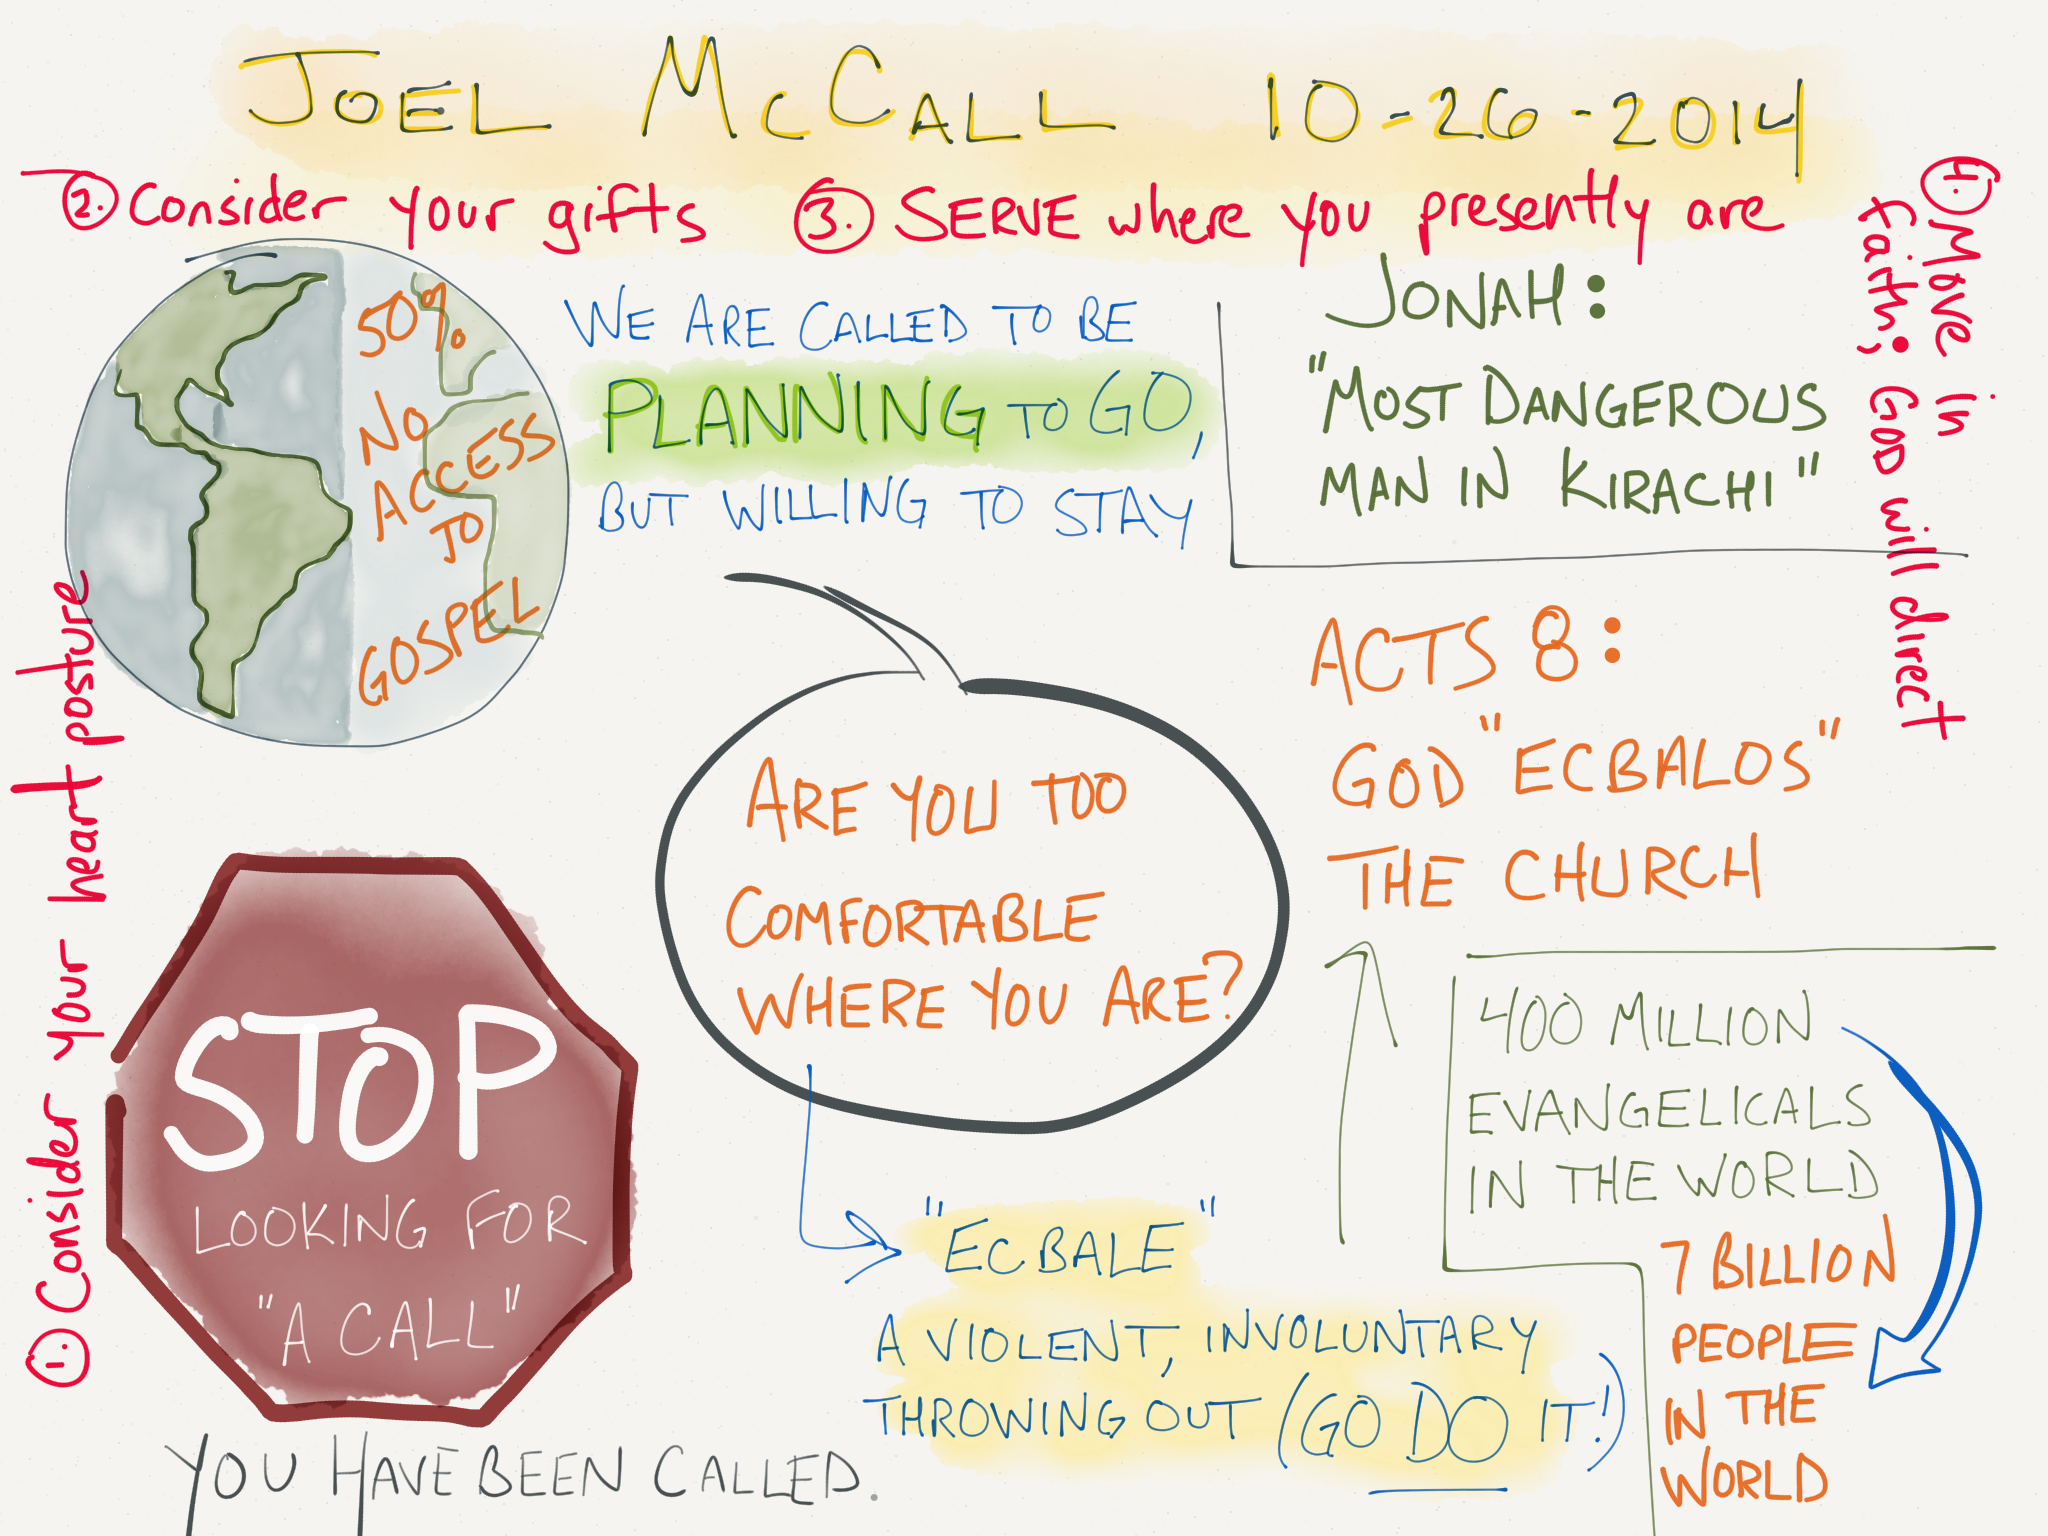 JOEL McCALL 10-26-2014
2. Consider your gifts
3. SERVE where you presently are
4. Move in
faith; GOD will direct
50%
NO
ACCESS
TO
GOSPEL
WE ARE CALLED TO BE
PLANNING TO GO,
BUT WILLING TO STAY
JONAH:
"MOST DANGEROUS
MAN IN KIRACHI"
ACTS 8:
GOD "ECBALOS"
THE CHURCH
1. Consider your heart posture
ARE YOU TOO
COMFORTABLE
WHERE YOU ARE?
400 MILLION
EVANGELICALS
IN THE WORLD
7 BILLION
PEOPLE
IN THE
WORLD
STOP
LOOKING FOR
"A CALL"
YOU HAVE BEEN CALLED.
"ECBALE"
A VIOLENT, INVOLUNTARY
THROWING OUT (GO DO IT!)